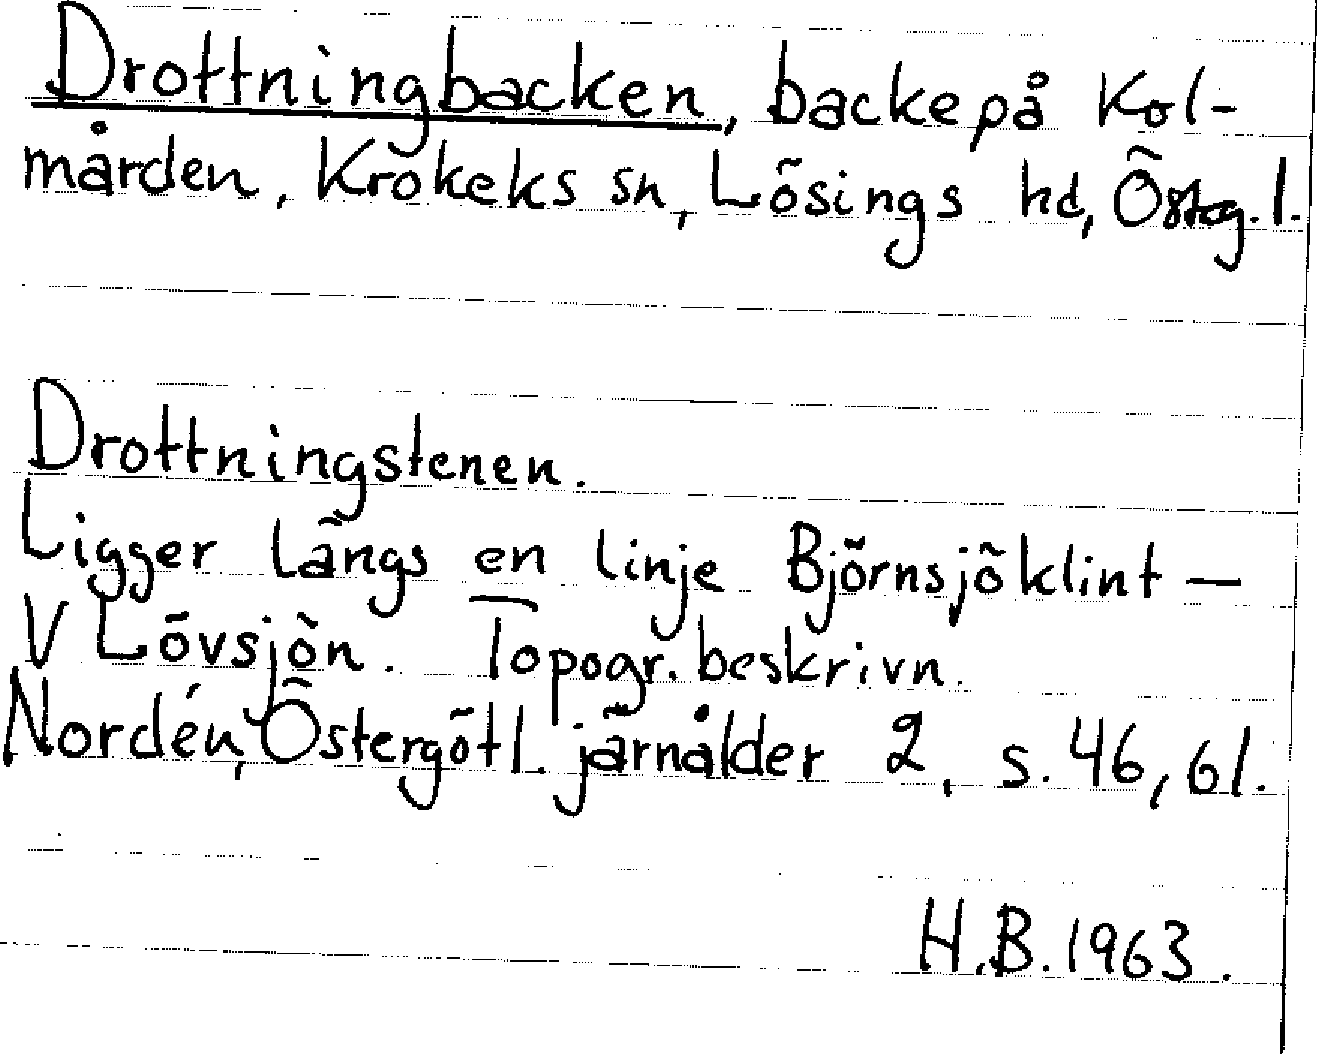 Drottningbacken, backe på Kol-
mården, Krokeks sn, Lösings hd, Östg. l.
Drottningstenen.
Ligger längs en linje Björnsjöklint —
V Lövsjön. Topogr. beskrivn.
Nordén, Östergötl. järnålder 2, s. 46, 61.
H.B. 1963.